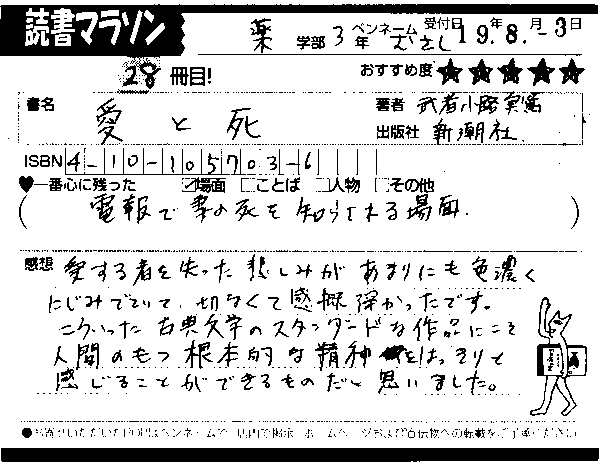 読書マラソン
薬 学部 3年 ペンネーム むさし 受付日 19.年 8.月 -3日
28 冊目! おすすめ度 ★★★★★
書名 愛と死 著者 武者小路実篤
出版社 新潮社
ISBN 4-10-105703-6
♥一番心に残った ☑場面 □ことば □人物 □その他
(電報で妻の死を知らされる場面.)
感想 愛する者を失った悲しみがあまりにも色濃く
にじみでていて、切なくて感慨深かったです。
こういった古典文学のスタンダードな作品にこそ
人間のもつ根本的な精神をはっきりと
感じることができるものだと思いました。
●お寄せいただいたPOPはペンネームで、店内で掲示、ホームページおよび宣伝物への転載をご了承ください